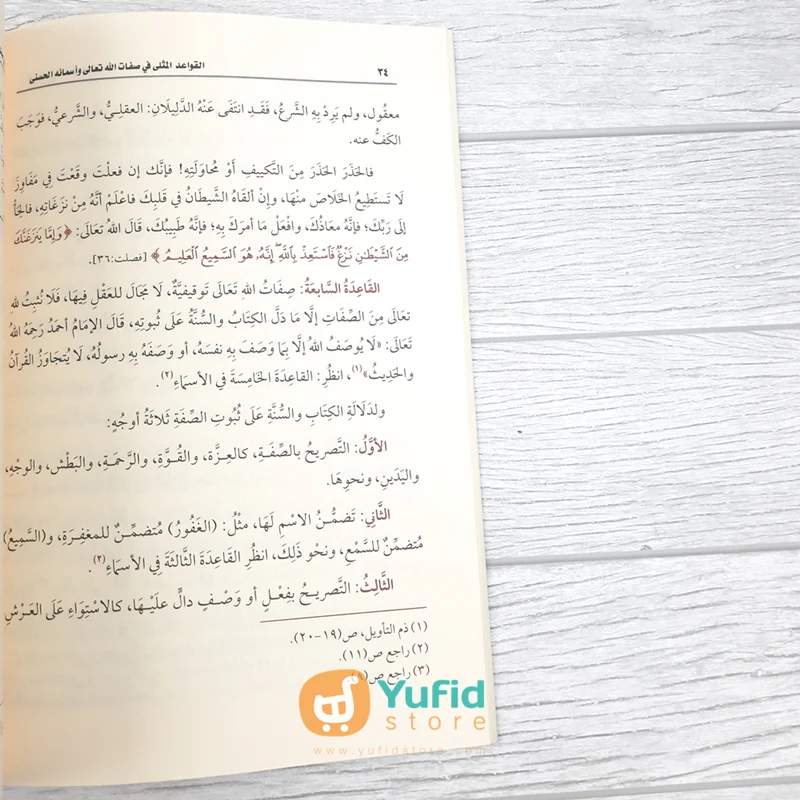 ٣٤
القواعد المثلى في صفات الله تعالى وأسمائه الحسنى
معقول، ولم يَرِدْ بِهِ الشَّرعُ، فَقَدِ انتَفَى عَنْهُ الدَّلِيلَانِ: العقليُّ، والشَّرعيُّ، فوَجَبَ
الكَفُّ عنه.
فالحَذَرَ الحَذَرَ مِنَ التَّكييفِ أَوْ مُحاوَلَتِهِ! فإنَّكَ إن فعلْتَ وقَعْتَ فِي مَفَاوِزَ
لَا تَستَطِيعُ الخَلَاصَ منْهَا، وإنْ ألقَاهُ الشَّيطَانُ في قلبِكَ فاعْلَمْ أنَّهُ مِنْ نزَغَاتِهِ، فالجَأْ
إلى رَبِّكَ؛ فإنَّهُ مَعاذُكَ، وافْعَلْ مَا أمرَكَ بِهِ؛ فإنَّهُ طَبِيبُكَ، قَالَ اللهُ تعَالَى: ﴿وَإِمَّا يَنزَغَنَّكَ
مِنَ ٱلشَّيْطَـٰنِ نَزْغٌ فَٱسْتَعِذْ بِٱللَّهِ ۖ إِنَّهُۥ هُوَ ٱلسَّمِيعُ ٱلْعَلِيمُ﴾ [فصلت:٣٦].
القَاعِدَةُ السَّابعَةُ: صِفَاتُ اللهِ تَعَالَى تَوقِيفيَّةٌ، لَا مَجَالَ للعَقْلِ فِيهَا، فَلَا نُثبِتُ للهِ
تعَالَى مِنَ الصِّفَاتِ إلَّا مَا دَلَّ الكِتَابُ والسُّنَّةُ عَلَى ثُبوتِهِ، قَالَ الإمَامُ أحمَدُ رَحِمَهُ اللهُ
تَعَالَى: «لَا يُوصَفُ اللهُ إلَّا بِمَا وَصَفَ بِهِ نفسَهُ، أو وَصَفَهُ بِهِ رسولُهُ، لَا يُتجَاوَزُ القُرآنُ
والحَدِيثُ»(١)، انظُرِ: القاعِدَةَ الخَامِسَةَ في الأسمَاءِ(٢).
ولدَلَالَةِ الكِتَابِ والسُّنَّةِ عَلَى ثُبُوتِ الصِّفَةِ ثلَاثَةُ أوجُهٍ:
الأوَّلُ: التَّصريحُ بالصِّفَةِ، كالعِزَّة، والقُوَّةِ، والرَّحمَةِ، والبَطْشِ، والوجْهِ،
واليَدَينِ، ونحوِهَا.
الثَّانِي: تَضمُّنُ الاسْمِ لَهَا، مثْلُ: (الغَفُورُ) مُتضمِّنٌ للمغفِرَةِ، و(السَّمِيعُ)
مُتضمِّنٌ للسَّمْعِ، ونحْو ذَلِكَ، انظُرِ القَاعِدَةَ الثَّالثَةَ فِي الأسمَاءِ(٣).
الثَّالِثُ: التَّصريـحُ بفِعْلٍ أو وَصْفٍ دالٍّ علَيْهَا، كالاسْتِوَاءِ عَلَى العَرْشِ
(١) ذم التأويل، ص(١٩-٢٠).
(٢) راجع ص(١١).
(٣) راجع ص(٨).
Yufid
store
www.yufidstore.com